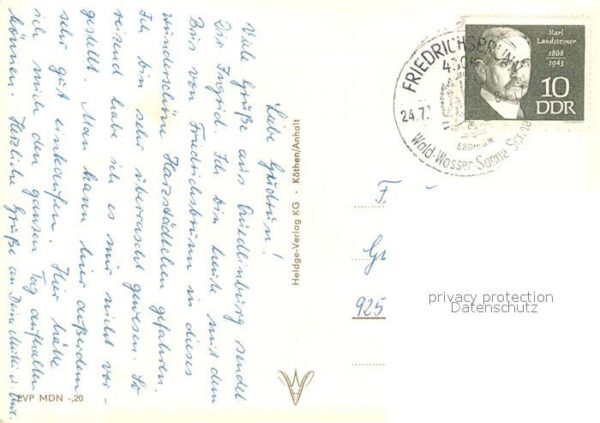 Liebe Gudrun!
Viele Grüße aus Quedlinburg sendet
Dir Ingrid. Ich bin heute mit dem
Bus von Friedrichsbrunn in dieses
wunderschöne Harzstädtchen gefahren.
Ich bin sehr überrascht gewesen. So
reizend habe ich es mir nicht vor-
gestellt. Man kann hier außerdem
sehr gut einkaufen. Hier hätte
ich mich den ganzen Tag aufhalten
können. Herzliche Grüße an Deine Mutti u.
EVP MDN -,20
Heldge-Verlag KG · Köthen/Anhalt
FRIEDRICHSBRUNN
4306
24.7.
580 m ü M
Wald-Wasser-Sonne
Karl
Landsteiner
1868
1943
10
DDR
925
privacy protection
Datenschutz